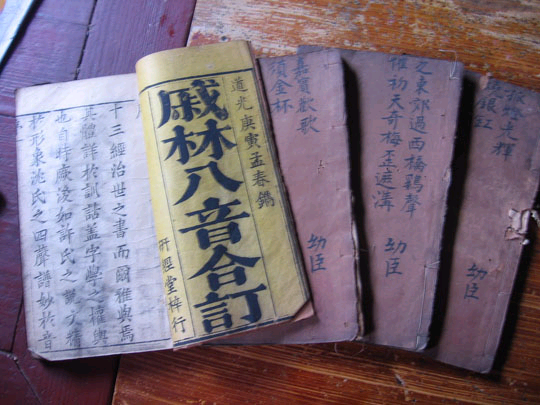 孤燈光輝
燒銀缸
幼臣
之東郊過西橋鷄聲
催初天奇梅歪遮溝
幼臣
嘉賓歡歌
須金杯
幼臣
道光庚寅孟春鐫
戚林八音合訂
研經堂梓行
十三經治世之書而爾雅與焉
其體詳於訓詁蓋字學之權輿
也自時厥後如許氏之說文楷
於形東沈氏之四聲譜妙於音